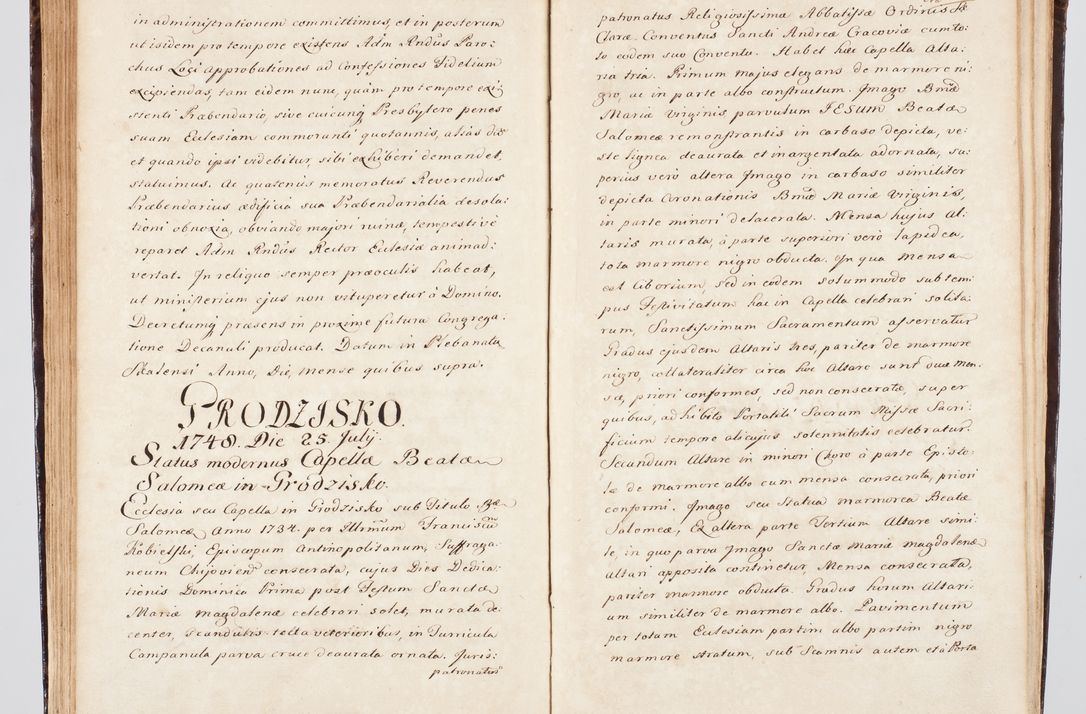 in administrationem committimus, et in posterum
ut isidem pro tempore existens Adm Rndus Paro:
chus Loci approbationes ad Confessiones Fidelium
excipiendas, tam eidem nunc, quam pro tempore exi:
stenti Præbendario, sive cuicunq Presbytero penes
suam Ecclesiam commoranti quotannis, alias dos
et quando ipsi videbitur, sibi exhiberi demandet,
statuimus. Ac quatenus memoratus Reverendus
Præbendarius ædificia sua Præbendarialia desola:
tioni obnoxia, obviando majori ruinæ, tempestivè
reparet Adm Rndus Rector Ecclesiæ animad:
vertat. In reliquo semper præoculis habeat,
ut ministerium ejus non vituperetur à Domino.
Decretumq præsens in proxime futura Congrega:
tione Decanali producat. Datum in Plebanali
Skalensi Anno, Die, Mense quibus supra.
GRODZISKO.
1748. Die 25. Julij.
Status modernus Capellæ Beatæ
Salomeæ in Grodzisko.
Ecclesia seu Capella in Grodzisko sub Titulo Bæ
Salomeæ Anno 1734. per Illrmum Franciscum
Kobielski, Episcopum Antinopolitanum, Suffraga:
neum Chijovien consecrata, cujus Dies Dedica:
tionis Dominica Prima post Festum Sanctæ
Mariæ Magdalenæ celebrari solet, murata de:
center, Scandulis tecta veterioribus, in Turricula
Campanula parva cruce deaurata ornata. Juris:
patronatus
patronatus Religiosissimæ Abbatissæ Ordinis Sæ
Claræ Conventus Sancti Andreæ Cracoviæ cum to:
to eodem suo Conventu. Habet hæc Capella Alta:
ria tria. Primum majus elegans de marmore ni:
gro, ac in parte albo constructum. Imago Bmæ
Mariæ Virginis parvulum JESUM Beatæ
Salomeæ remonstrantis in carbaso depicta, ve:
ste lignea deaurata et inargentata adornata, su:
perius verò altera Imago in carbaso similiter
depicta Coronationis Bmæ Mariæ Virginis,
in parte minori delacerata. Mensa hujus Al:
taris murata, à parte superiori verò lapidea,
tota marmore nigro obducta. In qua Mensa
est Ciborium, sed in eodem solummodo sub tem:
pus Festivitatum hac in Capella celebrari solita:
rum, Sanctissimum Sacramentum asservatur
Gradus ejusdem Altaris tres, pariter de marmore
nigro, collateraliter circa hoc Altare sunt duæ men:
sæ, priori conformes, sed non consecratæ, super
quibus, adhibito Portatili Sacrum Missæ Sacri:
ficium tempore alicujus solennitatis celebratur.
Secundum Altare in minori Choro à parte Episto:
læ de marmore albo cum mensa consecrata, priori
conformi. Imago seu Statua marmorea Beatæ
Salomeæ, Ex altera parte Tertium Altare simi:
le, in quo parva Imago Sanctæ Mariæ Magdalenæ
altari apposita continetur, Mensa consecrata,
pariter marmore obducta. Gradus horum Altari:
um similiter de marmore albo. Pavimentum
per totam Ecclesiam partim albo partim nigro
marmore stratum, sub Scamnis autem et à Porta